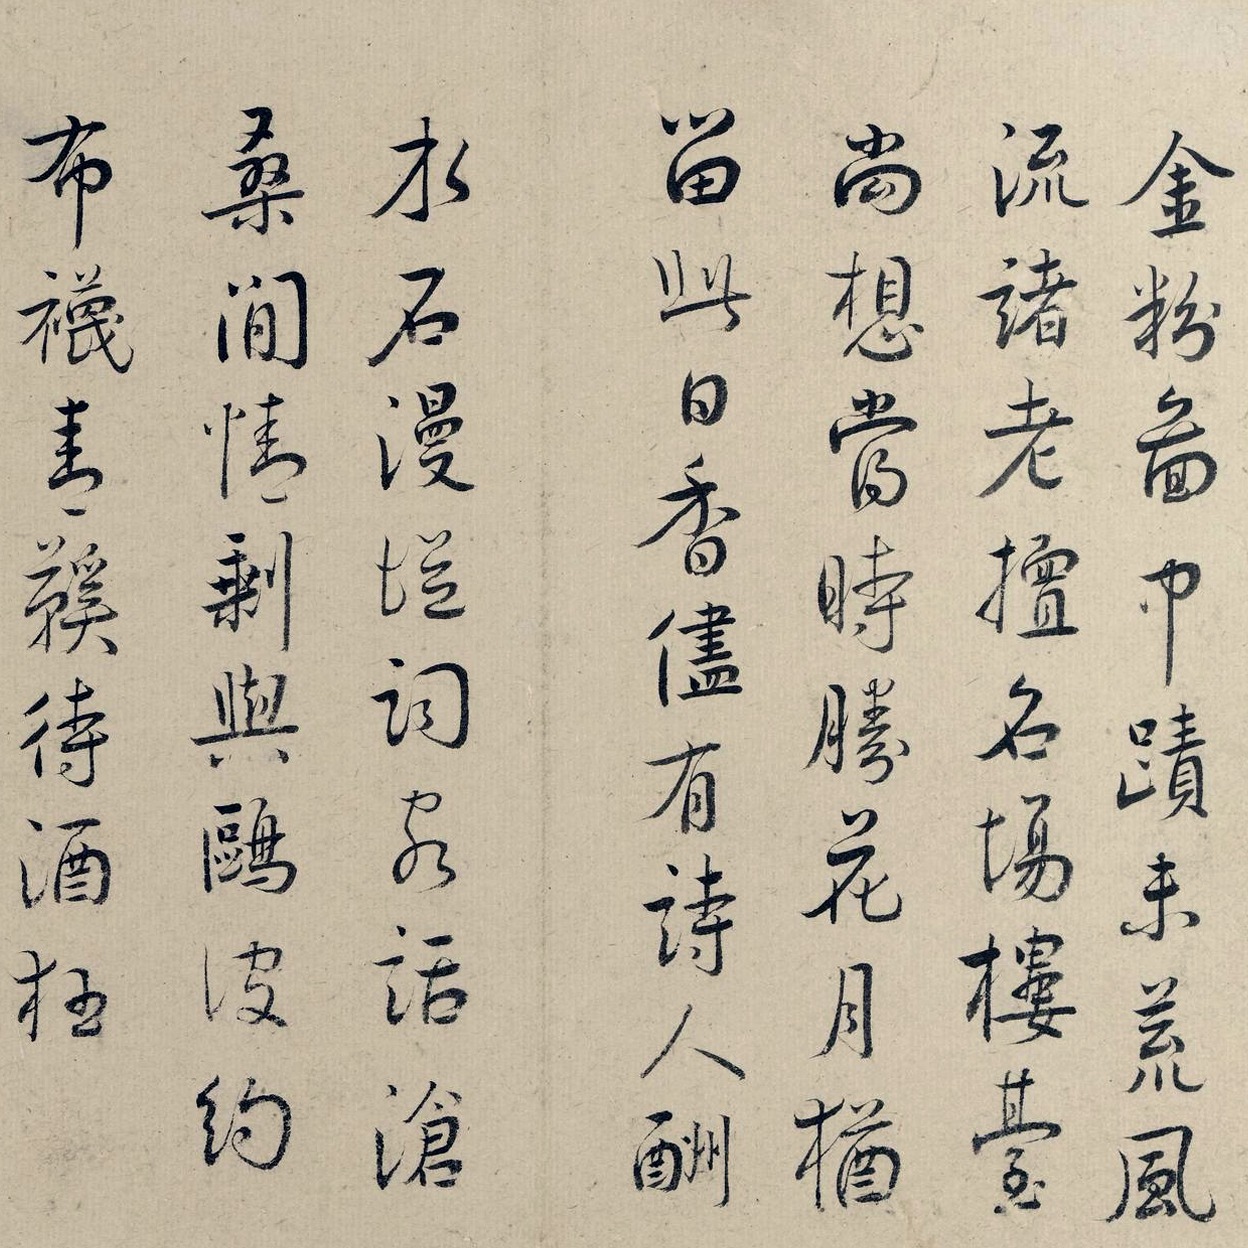 金粉啚中蹟未荒風
流諸老擅名場樓臺
尚想當時勝花月猶
留此日香儘有詩人酬
水石漫從詞客話滄
桑閒情剩與鷗波約
布襪青鞵待酒狂